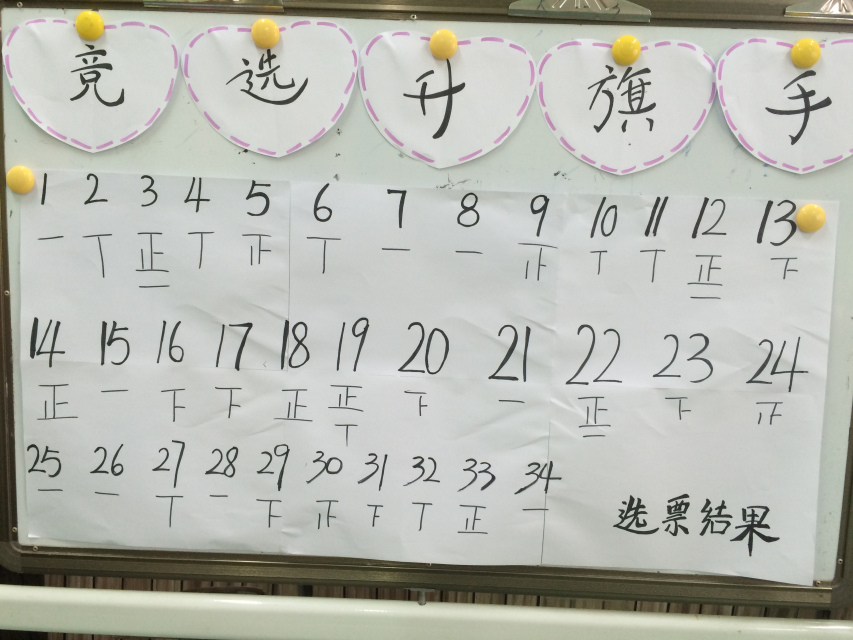 竞选升旗手
1 2 3 4 5 6 7 8 9 10 11 12 13
一 丅 正一 丅 正 丅 一 一 正 丅 丅 正一 下
14 15 16 17 18 19 20 21 22 23 24
正 一 下 下 正 正丅 下 一 正一 下 正
25 26 27 28 29 30 31 32 33 34
一 一 丅 一 下 正 下 丅 正 一
选票结果